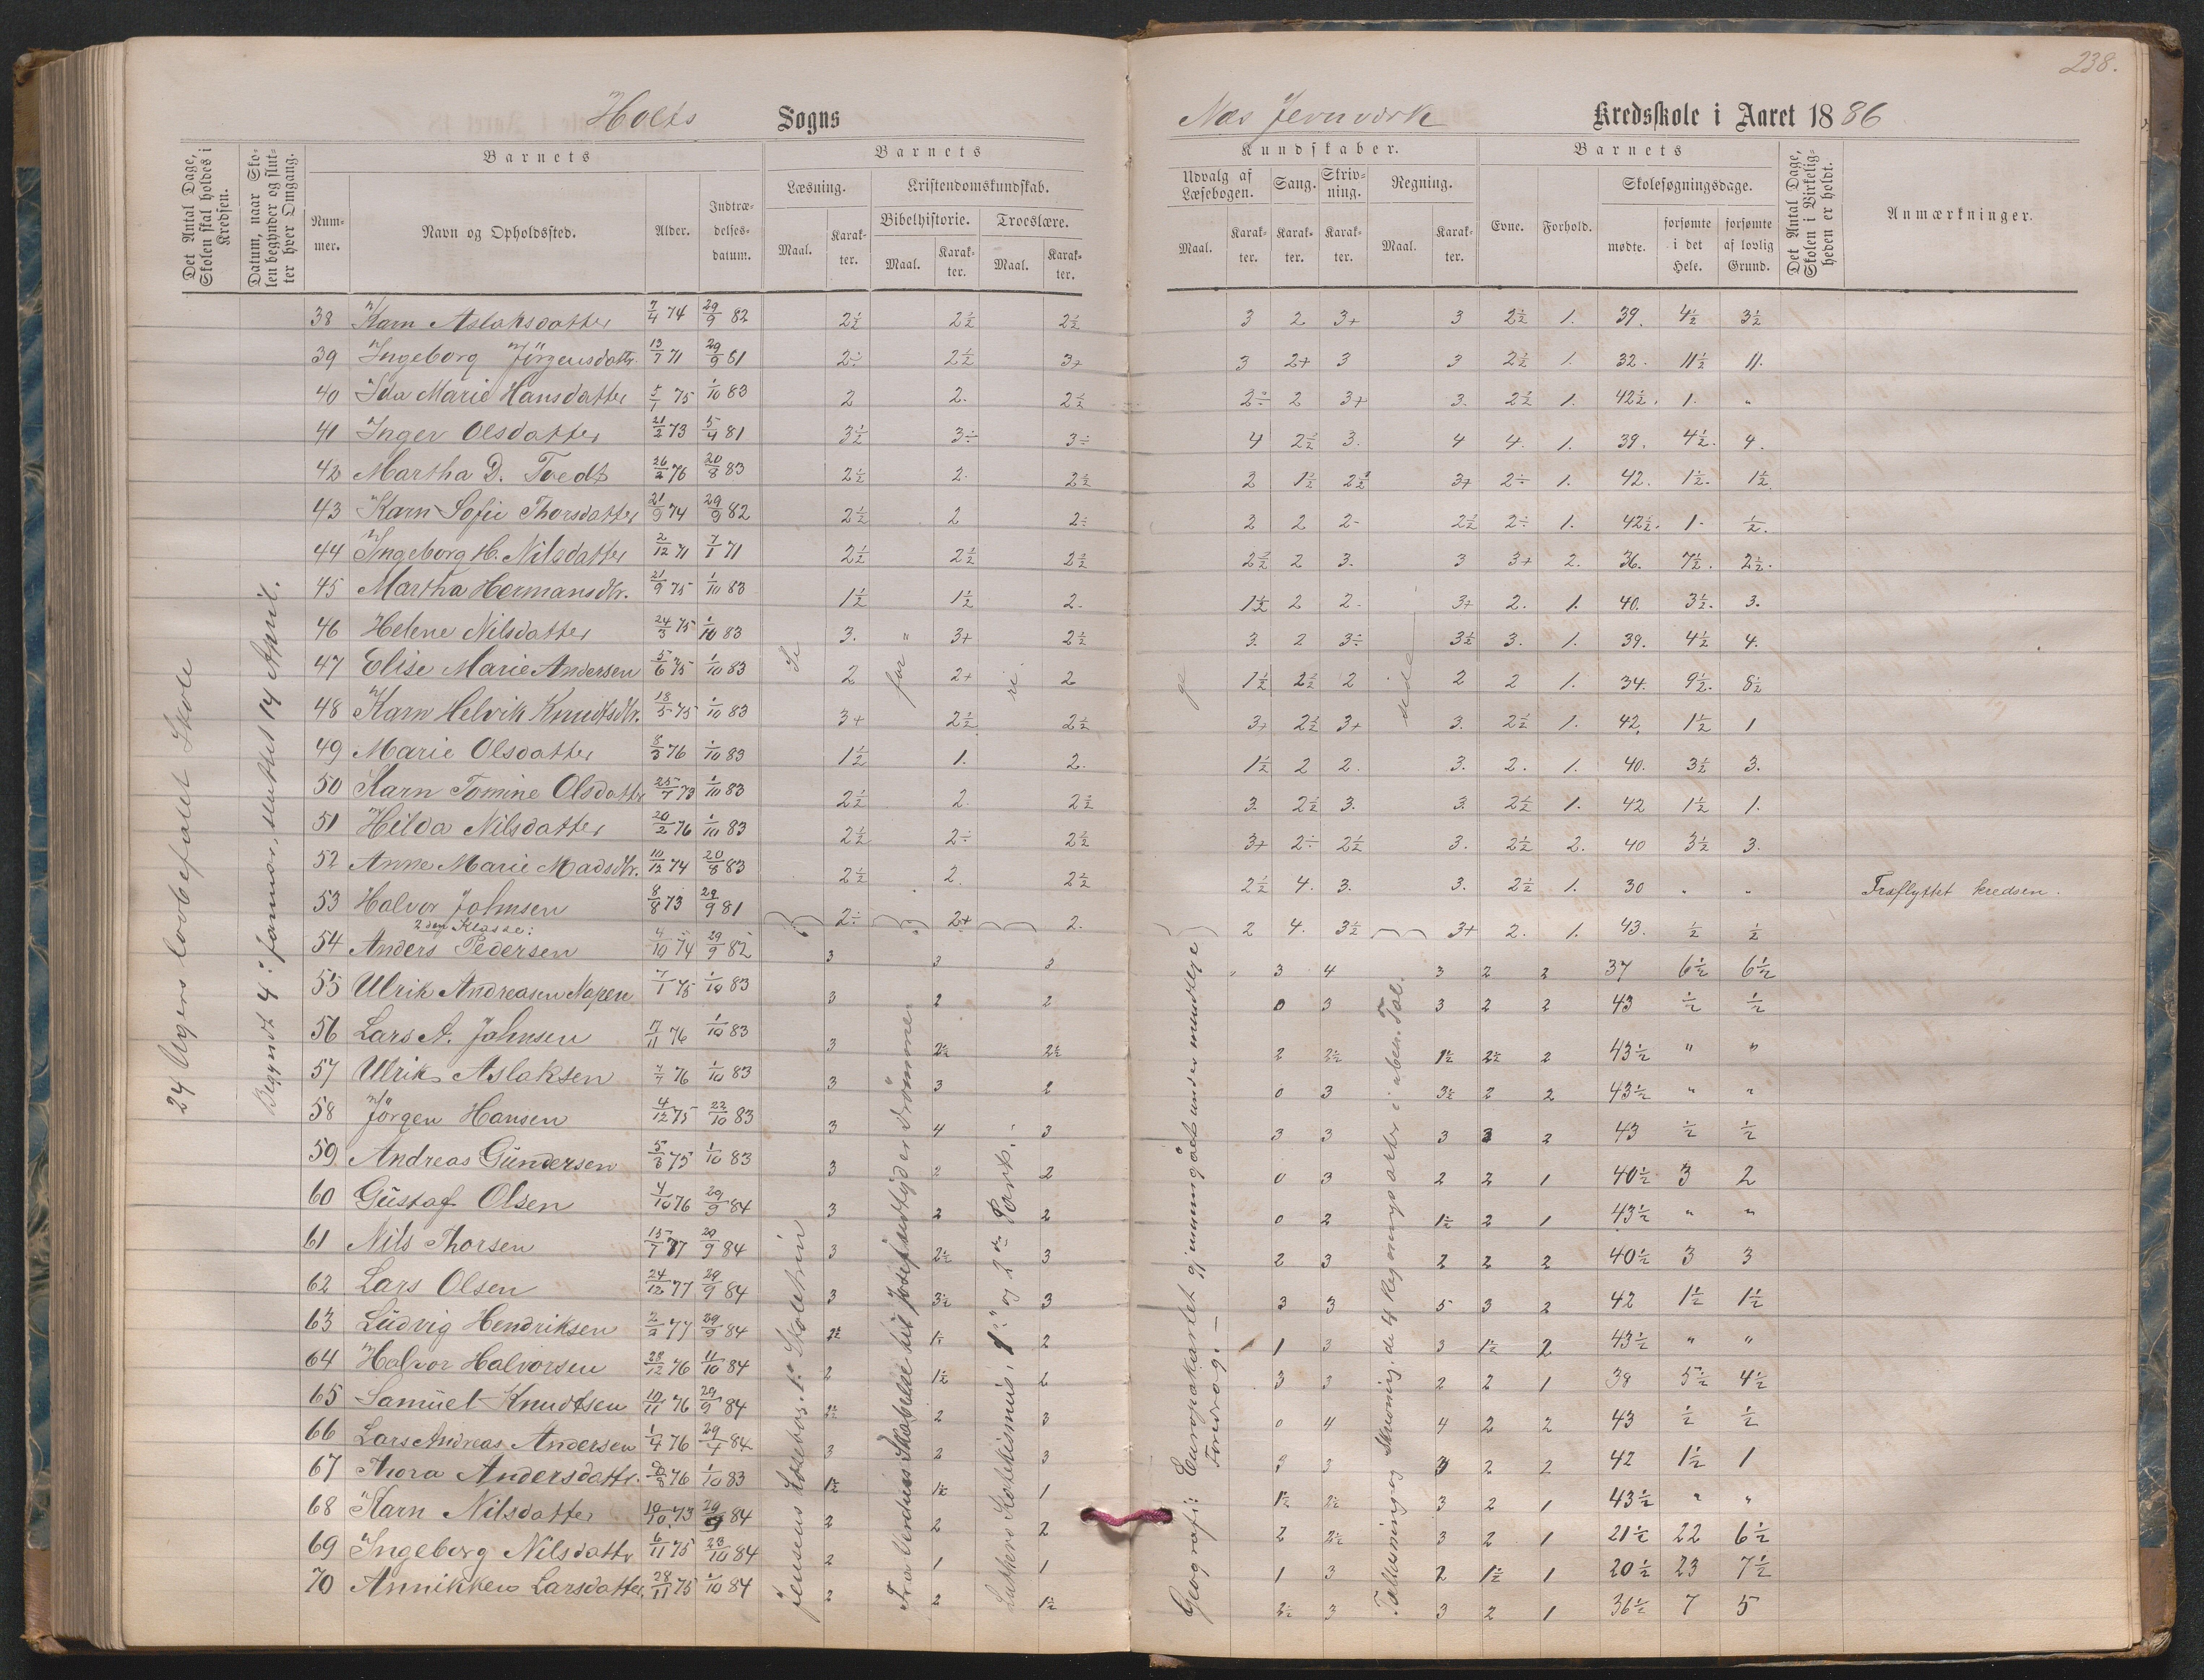 238.
Holts Sogns Næs Jernværk Kredsskole i Aaret 1886
Det Antal Dage, Skolen skal holdes i Kredsen.
Datum, naar Skolen begynder og slutter hver Omgang.
Barnets Barnets Kundskaber. Barnets
Nummer. Navn og Opholdssted. Alder. Indtrædelses-datum.
Læsning. Kristendomskundskab. Udvalg af Læsebogen. Sang. Skrivning. Regning. Evne. Forhold. Skolesøgningsdage.
Bibelhistorie. Troeslære.
Maal. Karakter. Maal. Karakter. Maal. Karakter. Maal. Karakter. Karakter. Karakter. Maal. Karakter. mødte. forsømte i det Hele. forsømte af lovlig Grund.
Det Antal Dage, Skolen i Virkeligheden er holdt.
Anmærkninger.
24 Ugers lovbefalet Skole
Begyndt 4' januar, sluttet 14 April.
38 Karn Aslaksdatter 7/4 74 29/9 82 2½ 2½ 2½ 3 2 3+ 3 2½ 1. 39. 4½ 3½
39 Ingeborg Jörgensdattr. 13/7 71 29/9 81 2÷ 2½ 3+ 3 2+ 3 3 2½ 1. 32. 11½ 11.
40 Ida Marie Hansdatter 5/1 75 1/10 83 2 2. 2½ 2÷ 2 3+ 3. 2½ 1. 42½. 1. "
41 Inger Olsdatter 21/2 73 5/4 81 3½ 3÷ 3÷ 4 2½ 3. 4 4. 1. 39. 4½. 4.
42 Martha D. Tvedt 26/2 76 20/8 83 2½ 2. 2½ 2 1½ 2½ 3+ 2÷ 1. 42. 1½. 1½
43 Karn Sofie Thorsdatter 21/9 74 29/9 82 2½ 2 2÷ 2 2 2- 2½ 2÷ 1. 42½. 1. ½.
44 Ingeborg H. Nilsdatter 2/12 71 7/1 71 2½ 2½ 2½ 2½ 2 3. 3 3+ 2. 36. 7½. 2½.
45 Martha Hermansdtr. 21/9 75 1/10 83 1½ 1½ 2. 1½ 2 2. 3+ 2. 1. 40. 3½. 3.
46 Helene Nilsdatter 24/3 75 1/10 83 3. " 3+ 2½ 3. 2 3÷ 3½ 3. 1. 39. 4½ 4.
47 Elise Marie Andersen 5/6 75 1/10 83 Se 2 for 2+ ri 2 ge 1½ 2½ 2 dide 2 2 1. 34. 9½. 8½
48 Karn Helvik Knudtsdtr. 18/5 75 1/10 83 3+ 2½ 2½ 3+ 2½ 3+ 3. 2½ 1. 42, 1½ 1
49 Marie Olsdatter 8/3 76 1/10 83 1½ 1. 2. 1½ 2 2. 3. 2. 1. 40. 3½ 3.
50 Karn Tomine Olsdatter 25/7 73 1/10 83 2½ 2. 2½ 3. 2½ 3. 3. 2½ 1. 42 1½ 1.
51 Hilda Nilsdatter 20/2 76 1/10 83 2½ 2÷ 2½ 3+ 2÷ 2½ 3. 2½ 2. 40 3½ 3.
52 Anne Marie Madsdtr. 10/12 74 20/8 83 2½ 2. 2½ 2½ 4. 3. 3. 2½ 1. 30 " " Fraflyttet kredsen.
53 Halvor Johnsen 8/8 73 29/9 81 2÷ 2+ 2. 2 4. 3½ 3+ 2. 1. 43. ½ ½
2den Klasse:
54 Anders Pedersen 4/10 74 29/9 82 3 3 3 " 3 4 3 2 2 37 6½ 6½
55 Ulrik Andreasen Napen 7/1 75 1/10 83 3 2 2 0 3 3 2 2 43 ½ ½
56 Lars A. Johnsen 17/11 76 1/10 83 3 2½ 2½ 2 2½ 1½ 2½ 2 43½ " "
57 Ulrik Aslaksen 7/7 76 1/10 83 3 3 2 0 3 3½ 2 2 43½ " "
58 Jörgen Hansen 4/12 75 22/10 83 3 4 3 3 3 3 3 2 43 ½ ½
59 Andreas Gundersen 5/3 75 1/10 83 3 2 2 0 3 2 2 1 40½ 3 2
60 Gustaf Olsen 4/10 76 29/9 84 3 2 2 0 2 1½ 2 1 43½ " "
61 Nils Thorsen 15/7 77 29/9 84 3 2½ 3 2 3 2 2 2 40½ 3 3
62 Lars Olsen 24/12 77 29/9 84 3 3½ 3 3 3 5 3 2 42 1½ 1½
63 Ludvig Hendriksen 2/2 77 29/9 84 2½ 1½ 2 1 3 3 1½ 2 43½ " "
64 Halvor Halvorsen 28/12 76 11/10 84 2 1½ 2 3 3 2 2 1 38 5½ 4½
65 Samuel Knudtsen 10/11 76 29/9 84 2½ 2 3 0 4 4 2 2 43 ½ ½
66 Lars Andreas Andersen 1/4 76 29/4 84 3 2 3 3 3 3 2 2 42 1½ 1
67 Thora Andersdattr. 8/3 76 1/10 83 1½ 1½ 1 1½ 2½ 3 2 1 43½ " "
68 Karn Nilsdatter 10/10 73 29/9 84 2 2 2 2 2½ 3 2 1 21½ 22 6½
69 Ingeborg Nilsdattr 6/11 75 23/10 84 2 1 1 1 3 2 1½ 1 20½ 23 7½
70 Annikken Larsdatter 28/11 75 1/10 84 2 2 1½ 2½ 3 3 2 1 36½ 7 5
Jensens Læsebog, 1' Skoletrin
Fra Verdens Skabelse til Josef udtyder drømmene
Luthers Katekismus, 1' og 2den Part.
Geografi: Europakartet gjennemgået under mundlige Foredrag.
Tallæsning og Skrivning, de 4 Regningsarter i uben. Tal.